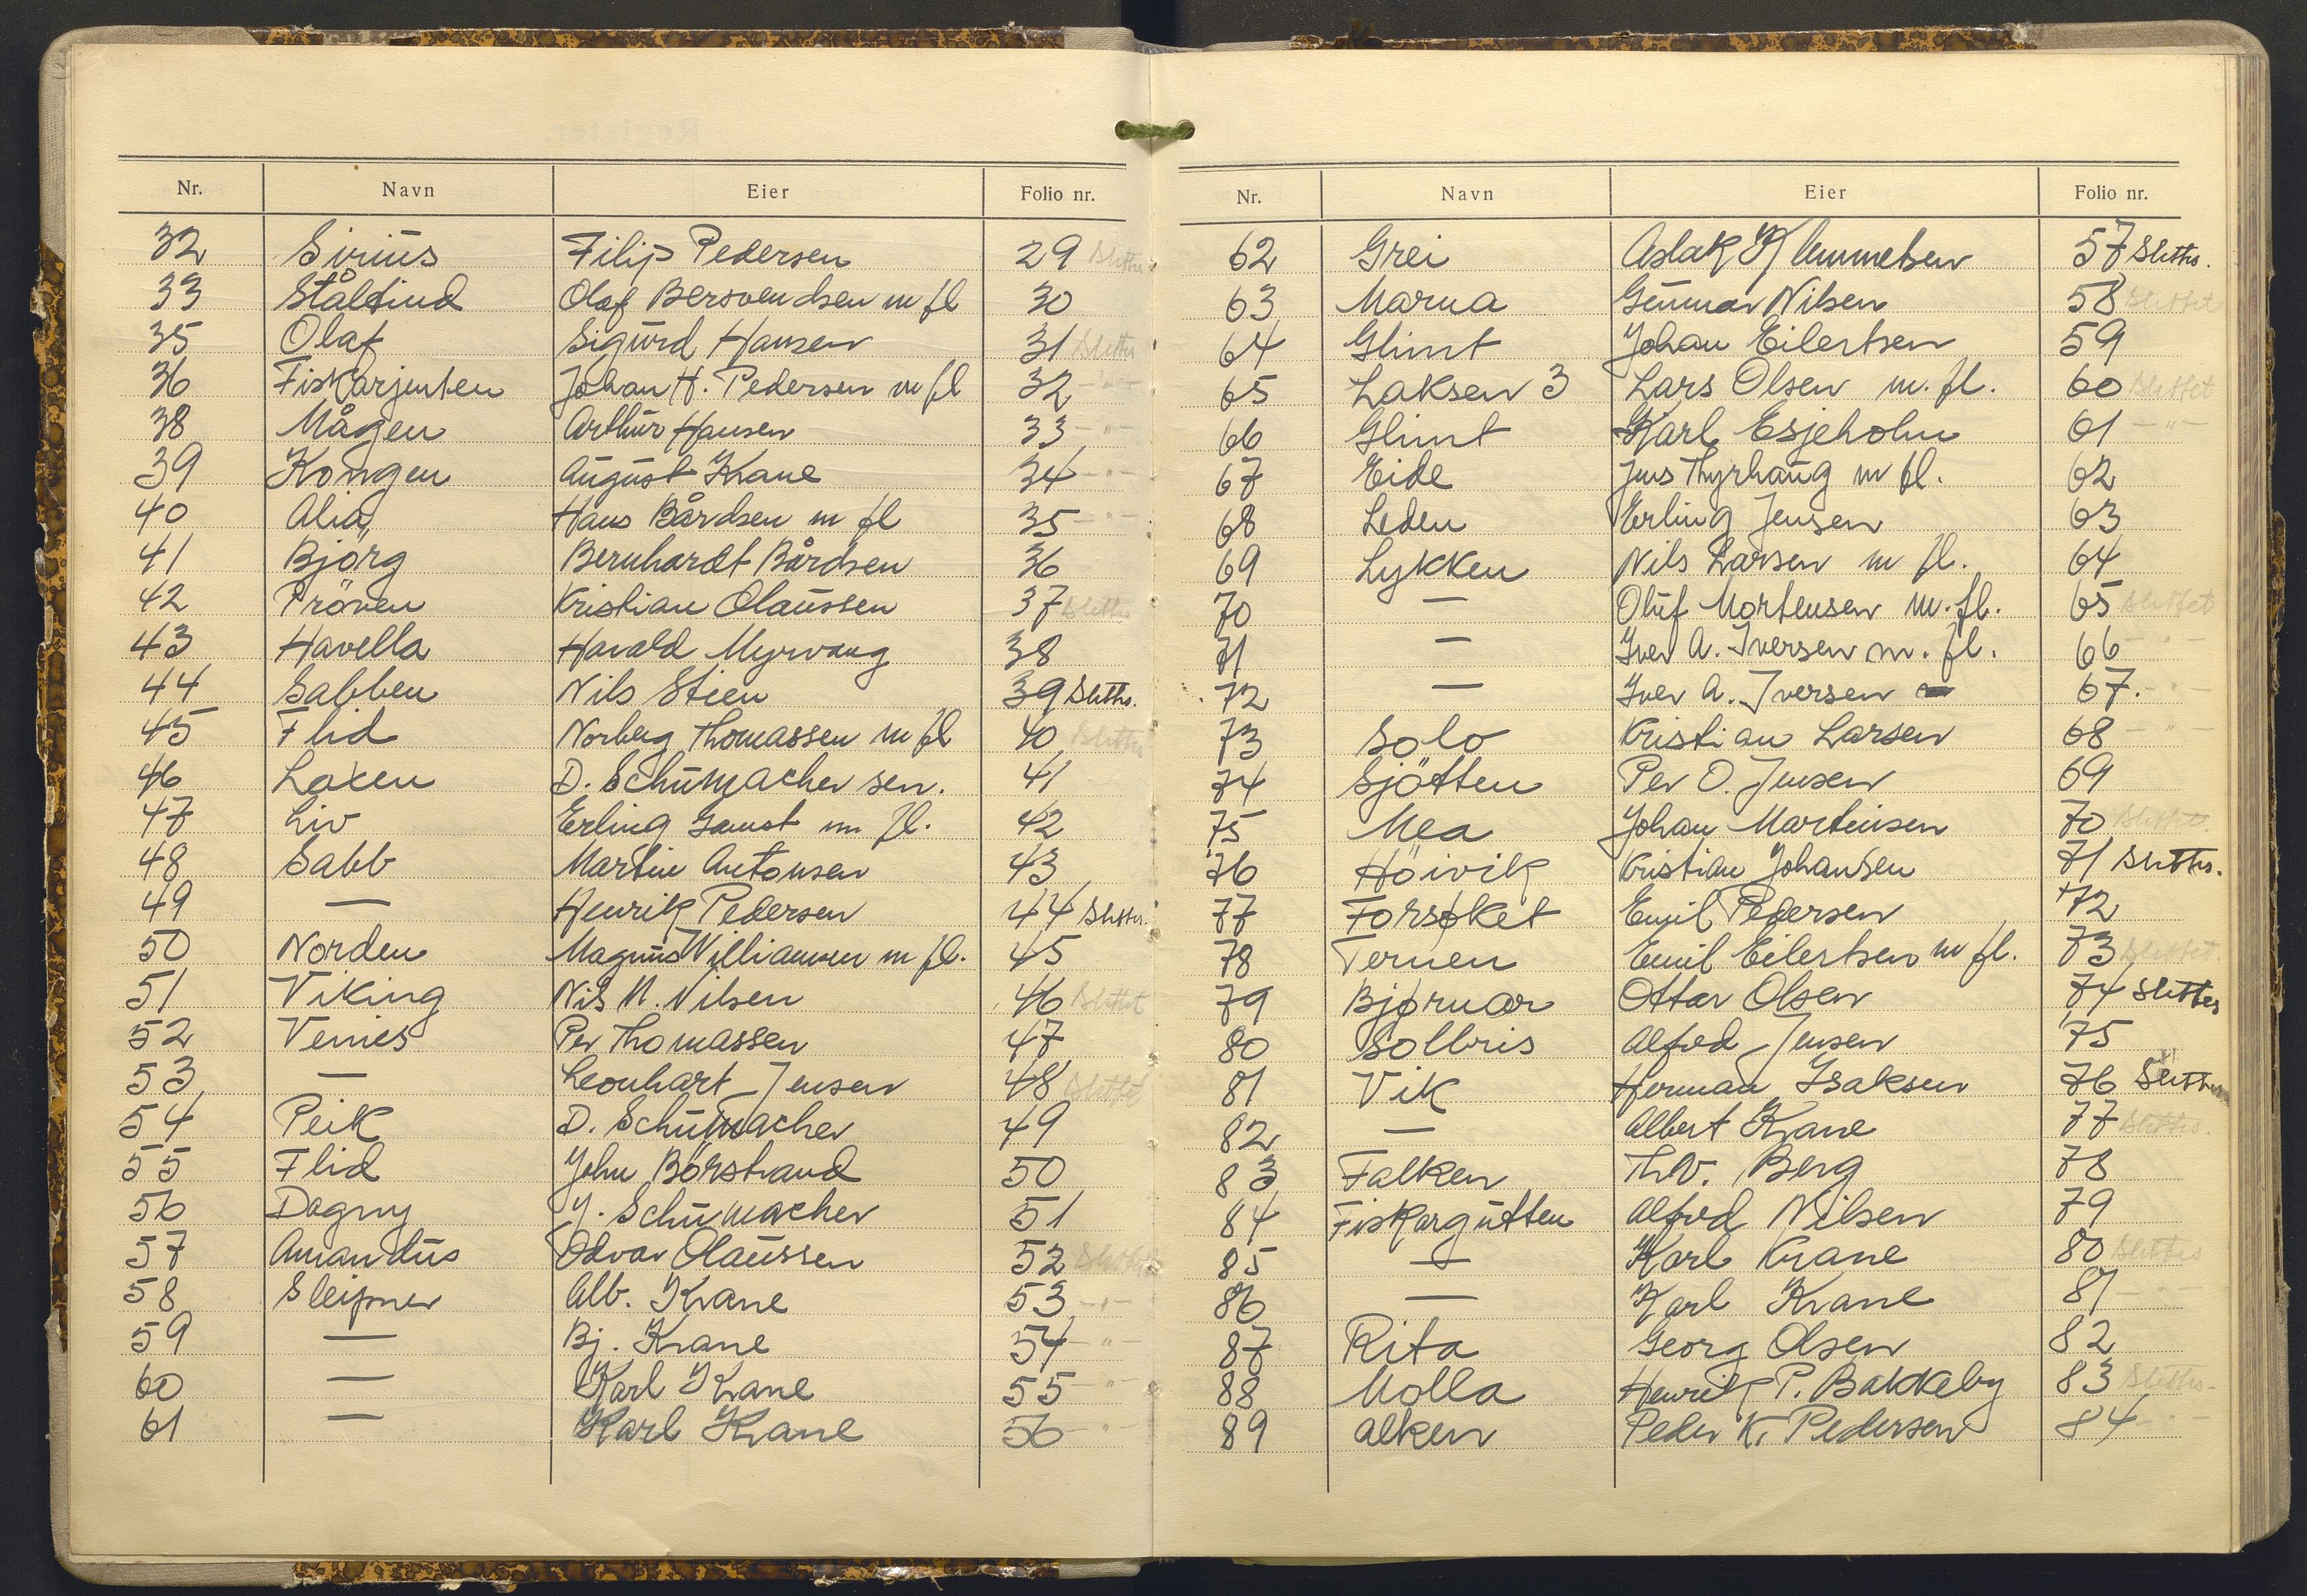 Nr. Navn Eier Folio nr.
32 Sirius Filip Pedersen 29 Slettes
33 Ståltind Olaf Bersvendsen m fl 30
35 Olaf Sigurd Hansen 31 Slettes
36 Fiskarjenten Johan H. Pedersen m fl 32 - " -
38 Mågen Arthur Hansen 33 - " -
39 Kongen August Krane 34 - " -
40 Alia Hans Bårdsen m fl 35 - " -
41 Bjørg Bernhardt Bårdsen 36
42 Pröven Kristian Olaussen 37 Slettes
43 Havella Harald Myrvang 38
44 Sabben Nils Stien 39 Slettes.
45 Flid Norberg Thomassen m fl 40 Slettes
46 Laxen D. Schumacher sen. 41
47 Liv Erling Gamst m fl. 42
48 Sabb Martin Antonsen 43
49 — Henrik Pedersen 44 Slettes.
50 Norden Magnus Williamsen m fl. 45
51 Viking Nils N. Nilsen 46 Slettet
52 Venus Per Thomassen 47
53 — Leonhart Jensen 48 Slettet
54 Peik D. Schumacher 49
55 Flid John Börstrand 50
56 Dagny J. Schumacher 51
57 Amandus Odvar Olaussen 52 Slettet
58 Sleipner Alb. Krane 53 - " -
59 — Bj. Krane 54 - " -
60 — Karl Krane 55 - " -
61 — Karl Krane 56 - " -
Nr. Navn Eier Folio nr.
62 Grei Aslak Klemmetsen 57 Slettes.
63 Marna Gunnar Nilsen 58 Slettet
64 Glimt Johan Eilertsen 59
65 Laksen 3 Lars Olsen m. fl. 60 Slettet
66 Glimt Karl Esjeholm 61 - " -
67 Eide Jens Thyrhaug m fl. 62
68 Leden Erling Jensen 63
69 Lykken Nils Larsen m fl. 64
70 — Oluf Mortensen m. fl. 65 Slettet
71 — Iver A. Iversen m. fl. 66 - " -
72 — Iver A. Iversen 67. - " -
73 Solo Kristian Larsen 68 - " -
74 Sjötten Per O. Jensen 69
75 Mea Johan Martinsen 70 Slettet.
76 Höivik Kristian Johansen 71 Slettes.
77 Forsøket Emil Pedersen 72
78 Ternen Emil Eilertsen m fl. 73 Slettet.
79 Bjørnar Ottar Olsen 74 Slettes
80 Solbris Alfred Jensen 75
81 Vik Herman Isaksen 76 Slettes
82 — Albert Krane 77 Slettes.
83 Falken Th. V. Berg 78
84 Fiskargutten Alfred Nilsen 79
85 — Karl Krane 80 Slettes
86 — Karl Krane 81 - " -
87 Rita Georg Olsen 82
88 Molla Henrik P. Bakkeby 83 Slettes.
89 Alken Peder K. Pedersen 84 - " -